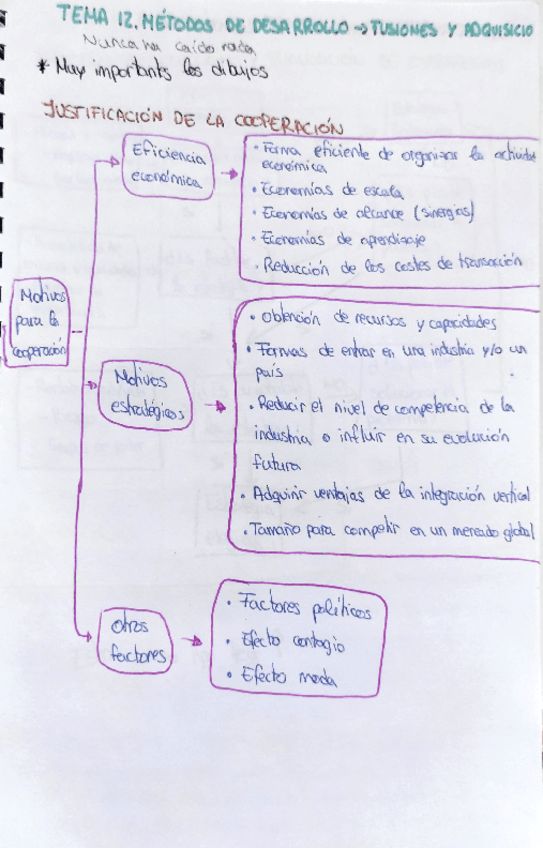 TEMA 12. MÉTODOS DE DESARROLLO → FUSIONES Y ADQUISICIO
Nunca ha caído nada
* Muy importants los dibujos
JUSTIFICACIÓN DE LA COOPERACIÓN
Motivos
para la
cooperación
Eficiencia
económica
• Forma eficiente de organizar la actividad
económica
• Economías de escala
• Economías de alcance (sinergias)
• Economías de aprendizaje
• Reducción de los costes de transacción
Motivos
estratégicos
• Obtención de recursos y capacidades
• Formas de entrar en una industria y/o un
país
• Reducir el nivel de competencia de la
industria o influir en su evolución
futura
• Adquirir ventajas de la integración vertical
• Tamaño para competir en un mercado global
Otros
factores
• Factores políticos
• Efecto contagio
• Efecto moda